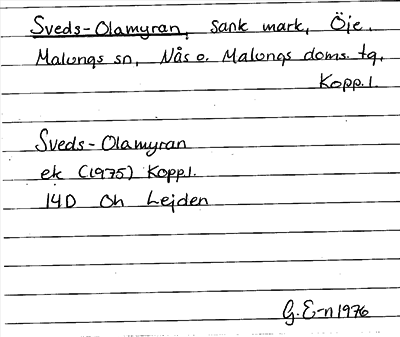 Sveds-Olamyran, sank mark, Öje,
Malungs sn, Nås o. Malungs doms. tg,
Kopp.l.
Sveds-Olamyran
ek (1975) Koppl.
14D Oh Lejden
G. E-n 1976